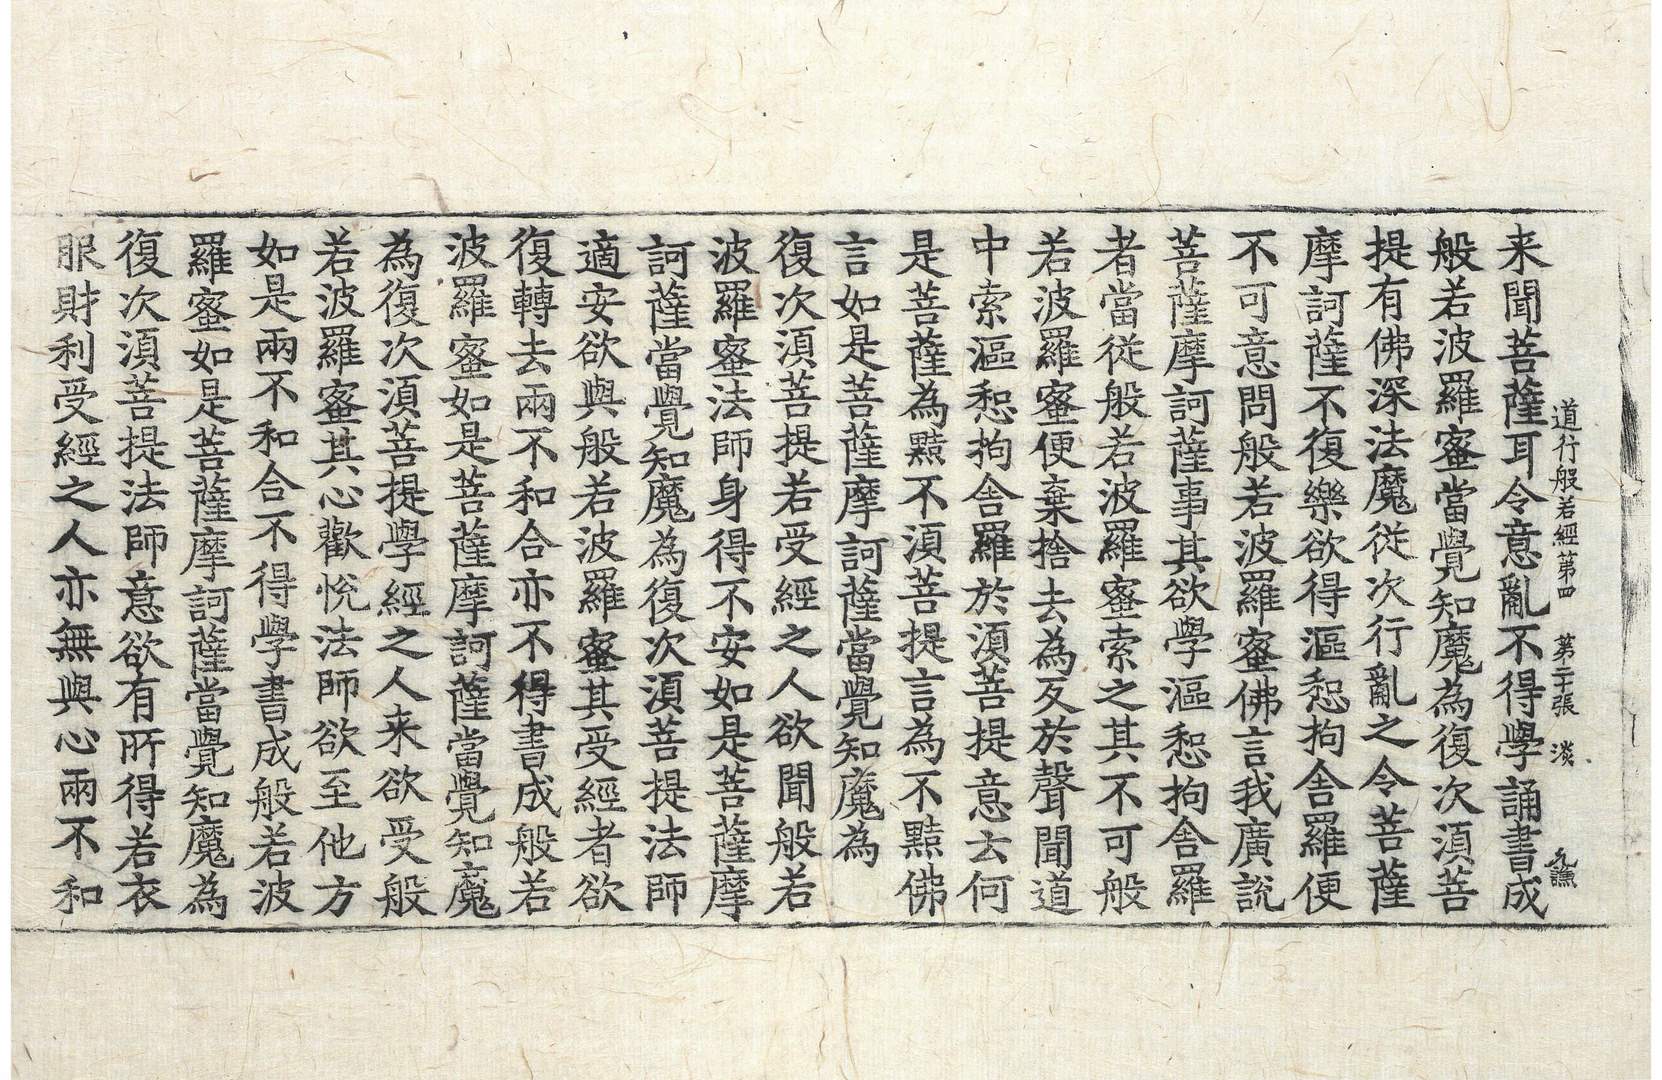 道行般若經第四 第二十張 淡
来聞菩薩耳令意亂不得學誦書成
般若波羅蜜當覺知魔為復次湏菩
提有佛深法魔従次行亂之令菩薩
摩訶薩不復樂欲得漚惒拘舍羅便
不可意問般若波羅蜜佛言我廣說
菩薩摩訶薩事其欲學漚惒拘舍羅
者當従般若波羅蜜索之其不可般
若波羅蜜便棄捨去為反於聲聞道
中索漚惒拘舍羅於湏菩提意云何
是菩薩為黠不湏菩提言為不黠佛
言如是菩薩摩訶薩當覺知魔為
復次湏菩提若受經之人欲聞般若
波羅蜜法師身得不安如是菩薩摩
訶薩當覺知魔為復次湏菩提法師
適安欲與般若波羅蜜其受經者欲
復轉去兩不和合亦不得書成般若
波羅蜜如是菩薩摩訶薩當覺知魔
為復次湏菩提學經之人来欲受般
若波羅蜜其心歡悅法師欲至他方
如是兩不和合不得學書成般若波
羅蜜如是菩薩摩訶薩當覺知魔為
復次湏菩提法師意欲有所得若衣
服財利受經之人亦無與心兩不和